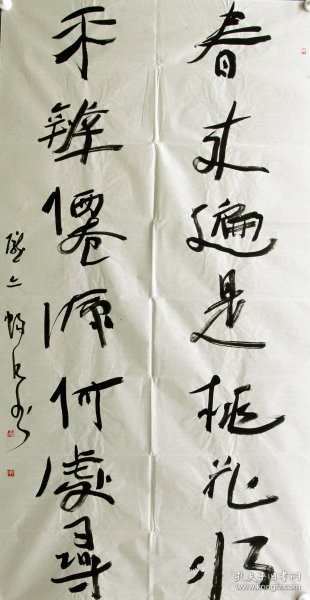 春来遍是桃花水
不辨僊源何處尋
孔夫子旧书网
www.kongfz.com